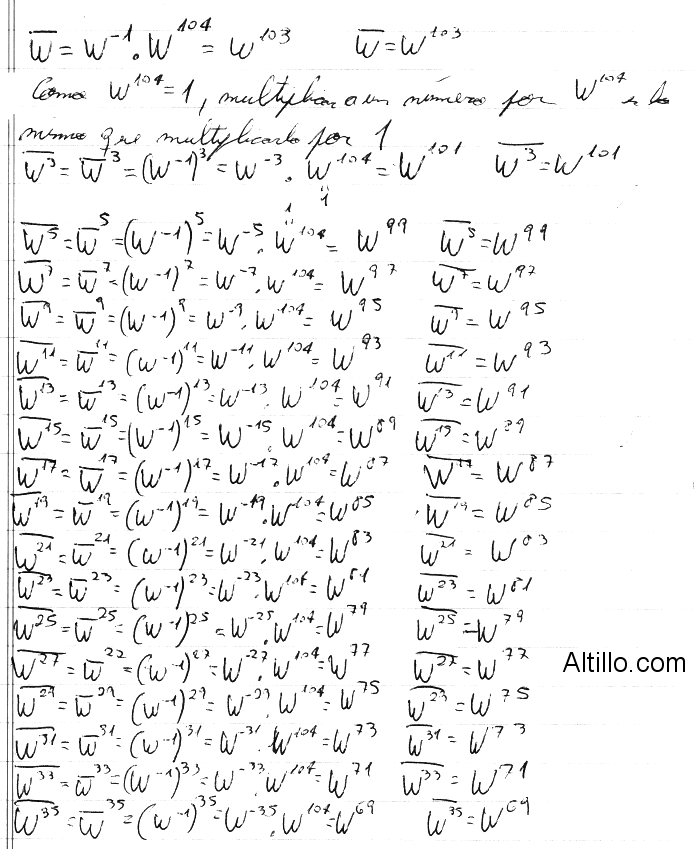 w̅ = w⁻¹ . w¹⁰⁴ = w¹⁰³ w̅ = w¹⁰³
Como w¹⁰⁴ = 1, multiplicar a un número por w¹⁰⁴ es lo
mismo que multiplicarlo por 1
w̅³ = w̅³ = (w⁻¹)³ = w⁻³ . w¹⁰⁴ = w¹⁰¹ w̅³ = w¹⁰¹
1
1
w̅⁵ = w̅⁵ = (w⁻¹)⁵ = w⁻⁵ . w¹⁰⁴ = w⁹⁹ w̅⁵ = w⁹⁹
w̅⁷ = w̅⁷ = (w⁻¹)⁷ = w⁻⁷ . w¹⁰⁴ = w⁹⁷ w̅⁷ = w⁹⁷
w̅⁹ = w̅⁹ = (w⁻¹)⁹ = w⁻⁹ . w¹⁰⁴ = w⁹⁵ w̅⁹ = w⁹⁵
w̅¹¹ = w̅¹¹ = (w⁻¹)¹¹ = w⁻¹¹ . w¹⁰⁴ = w⁹³ w̅¹¹ = w⁹³
w̅¹³ = w̅¹³ = (w⁻¹)¹³ = w⁻¹³ . w¹⁰⁴ = w⁹¹ w̅¹³ = w⁹¹
w̅¹⁵ = w̅¹⁵ = (w⁻¹)¹⁵ = w⁻¹⁵ . w¹⁰⁴ = w⁸⁹ w̅¹⁵ = w⁸⁹
w̅¹⁷ = w̅¹⁷ = (w⁻¹)¹⁷ = w⁻¹⁷ . w¹⁰⁴ = w⁸⁷ w̅¹⁷ = w⁸⁷
w̅¹⁹ = w̅¹⁹ = (w⁻¹)¹⁹ = w⁻¹⁹ . w¹⁰⁴ = w⁸⁵ w̅¹⁹ = w⁸⁵
w̅²¹ = w̅²¹ = (w⁻¹)²¹ = w⁻²¹ . w¹⁰⁴ = w⁸³ w̅²¹ = w⁸³
w̅²³ = w̅²³ = (w⁻¹)²³ = w⁻²³ . w¹⁰⁴ = w⁸¹ w̅²³ = w⁸¹
w̅²⁵ = w̅²⁵ = (w⁻¹)²⁵ = w⁻²⁵ . w¹⁰⁴ = w⁷⁹ w̅²⁵ = w⁷⁹
w̅²⁷ = w̅²⁷ = (w⁻¹)²⁷ = w⁻²⁷ . w¹⁰⁴ = w⁷⁷ w̅²⁷ = w⁷⁷
Altillo.com
w̅²⁹ = w̅²⁹ = (w⁻¹)²⁹ = w⁻²⁹ . w¹⁰⁴ = w⁷⁵ w̅²⁹ = w⁷⁵
w̅³¹ = w̅³¹ = (w⁻¹)³¹ = w⁻³¹ . w¹⁰⁴ = w⁷³ w̅³¹ = w⁷³
w̅³³ = w̅³³ = (w⁻¹)³³ = w⁻³³ . w¹⁰⁴ = w⁷¹ w̅³³ = w⁷¹
w̅³⁵ = w̅³⁵ = (w⁻¹)³⁵ = w⁻³⁵ . w¹⁰⁴ = w⁶⁹ w̅³⁵ = w⁶⁹